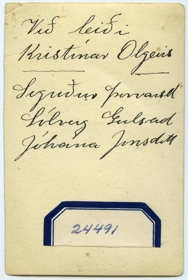 Við leiði
Kristínar Olgeirs
Sigríður Þorvarðd
Sólveig
Jóhana Jónsdótt
24491